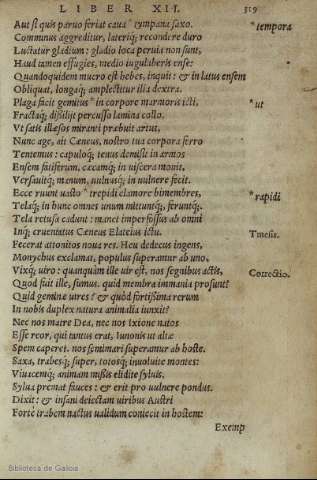 LIBER XII.
319
Aut si quis paruo feriat caua * tympana saxo.
* tempora
Comminus aggreditur, laterique; recondere duro
Luctatur gladium: gladio loca peruia non sunt,
Haud tamen effugies, medio iugulaberis ense:
Quandoquidem mucro est hebes, inquit: & in latus ensem
Obliquat, longaq; amplectitur ilia dextra.
Plaga facit gemitus * in corpore marmoris icti,
* ut
Fractaq; dissiluit percusso lamina collo.
Vt satis illæsos miranti præbuit artus,
Nunc age, ait Cæneus, nostro tua corpora ferro
Tentemus: capuloq; tenus demisit in armos
Ensem fatiferum, cæcamq; in uiscera mouit,
Versauitq; manum, uulnusq; in uulnere fecit.
Ecce ruunt uasto * trepidi clamore bimembres,
* rapidi
Telaq; in hunc omnes unum mittuntq; feruntq;.
Tela retusa cadunt: manet imperfossus ab omni
Inq; cruentatus Cæneus Elateius ictu.
Tmesis.
Fecerat attonitos noua res. Heu dedecus ingens,
Monychus exclamat, populus superamur ab uno,
Vixq; uiro: quanquam ille uir est, nos segnibus actis,
Correctio.
Quod fuit ille, sumus. quid membra immania prosunt?
Quid geminæ uires? & quòd fortissima rerum
In nobis duplex natura animalia iunxit?
Nec nos matre Dea, nec nos Ixione natos
Esse reor, qui tantus erat, Iunonis ut altæ
Spem caperet. nos semimari superamur ab hoste.
Saxa, trabesq;, super, totosq; inuoluite montes:
Viuacemq; animam missis elidite syluis.
Sylua premat fauces: & erit pro uulnere pondus.
Dixit: & insani deiectam uiribus Austri
Fortè trabem nactus ualidum coniecit in hostem:
Exemp
Biblioteca de Galicia